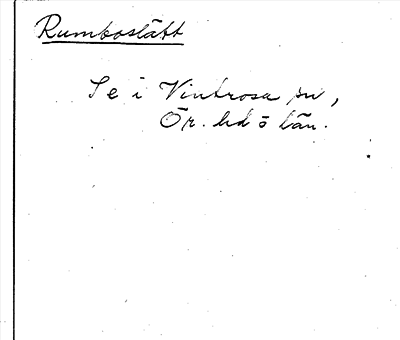 Rumboslätt
Se i Vintrosa sn,
Ör. hd ö län.